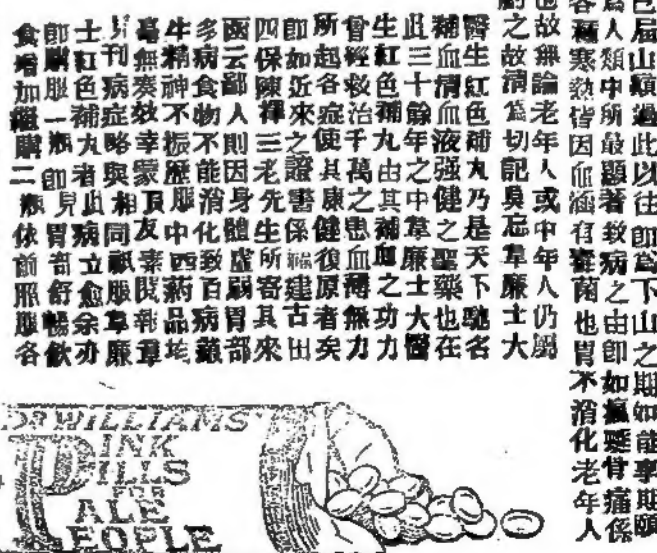 屆山巔過此以往即爲下山之期如能享期頤
爲人類中所最顯著致病之由即如瘋骨痛係
寒熱皆因血有毒菌也胃不消化老年人
也故無論老年人或中年人仍屬
之故請爲切記莫忘韋廉士大
醫生紅色補丸乃是天下馳名
補血清血液强健之聖藥也在
此三十餘年之中韋廉士大醫
生紅色補丸由其補血之功力
曾經救治千萬之患血薄無力
所起各症使其康健復原者矣
即如近來之證書係福建古田
四保陳禪三老先生所寄其來
函云鄙人則因身體虛弱胃部
多病食物不能消化致百病叢
生精神不振歷服中西葯品均
毫無奏效幸蒙頂友素閱報章
見刊病症略與相同祇服韋廉
士紅色補丸者此病立愈余亦
即購服一瓶即見胃部舒暢飲
食增加繼購二瓶依前照服各
DR WILLIAMS'
PINK
PILLS
FOR
PALE
PEOPLE